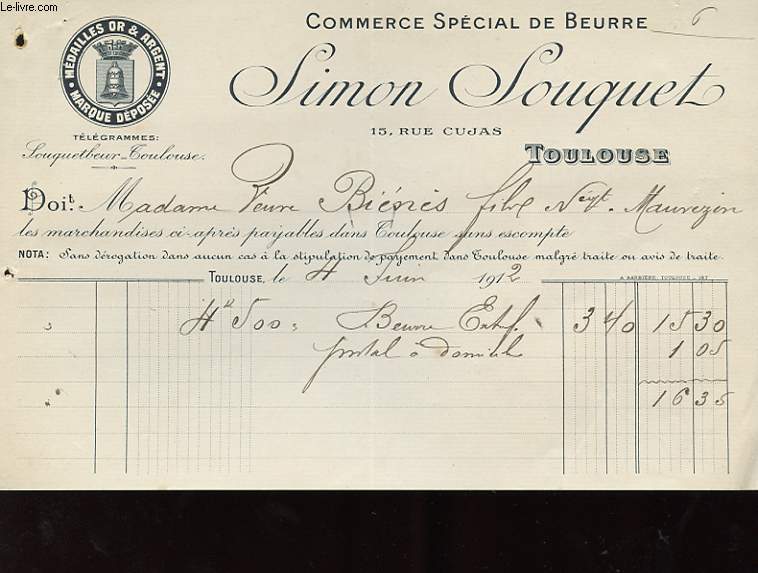 Le-livre.com
COMMERCE SPÉCIAL DE BEURRE 6
MÉDAILLES OR & ARGENT
MARQUE DÉPOSÉE
Simon Souquet
15, RUE CUJAS
TÉLÉGRAMMES:
Souquetbeur-Toulouse.
TOULOUSE
Doit Madame Veuve Biénès Mauvezin
les marchandises ci-après payables dans Toulouse sans escompte
NOTA: Sans dérogation dans aucun cas à la stipulation de payement dans Toulouse malgré traite ou avis de traite.
TOULOUSE, le 4 Juin 1912
A. BARBIÈRE, TOULOUSE
4k 500 Beurre Extf. 3 40 15 30
postal à domicile 1 05
16 35